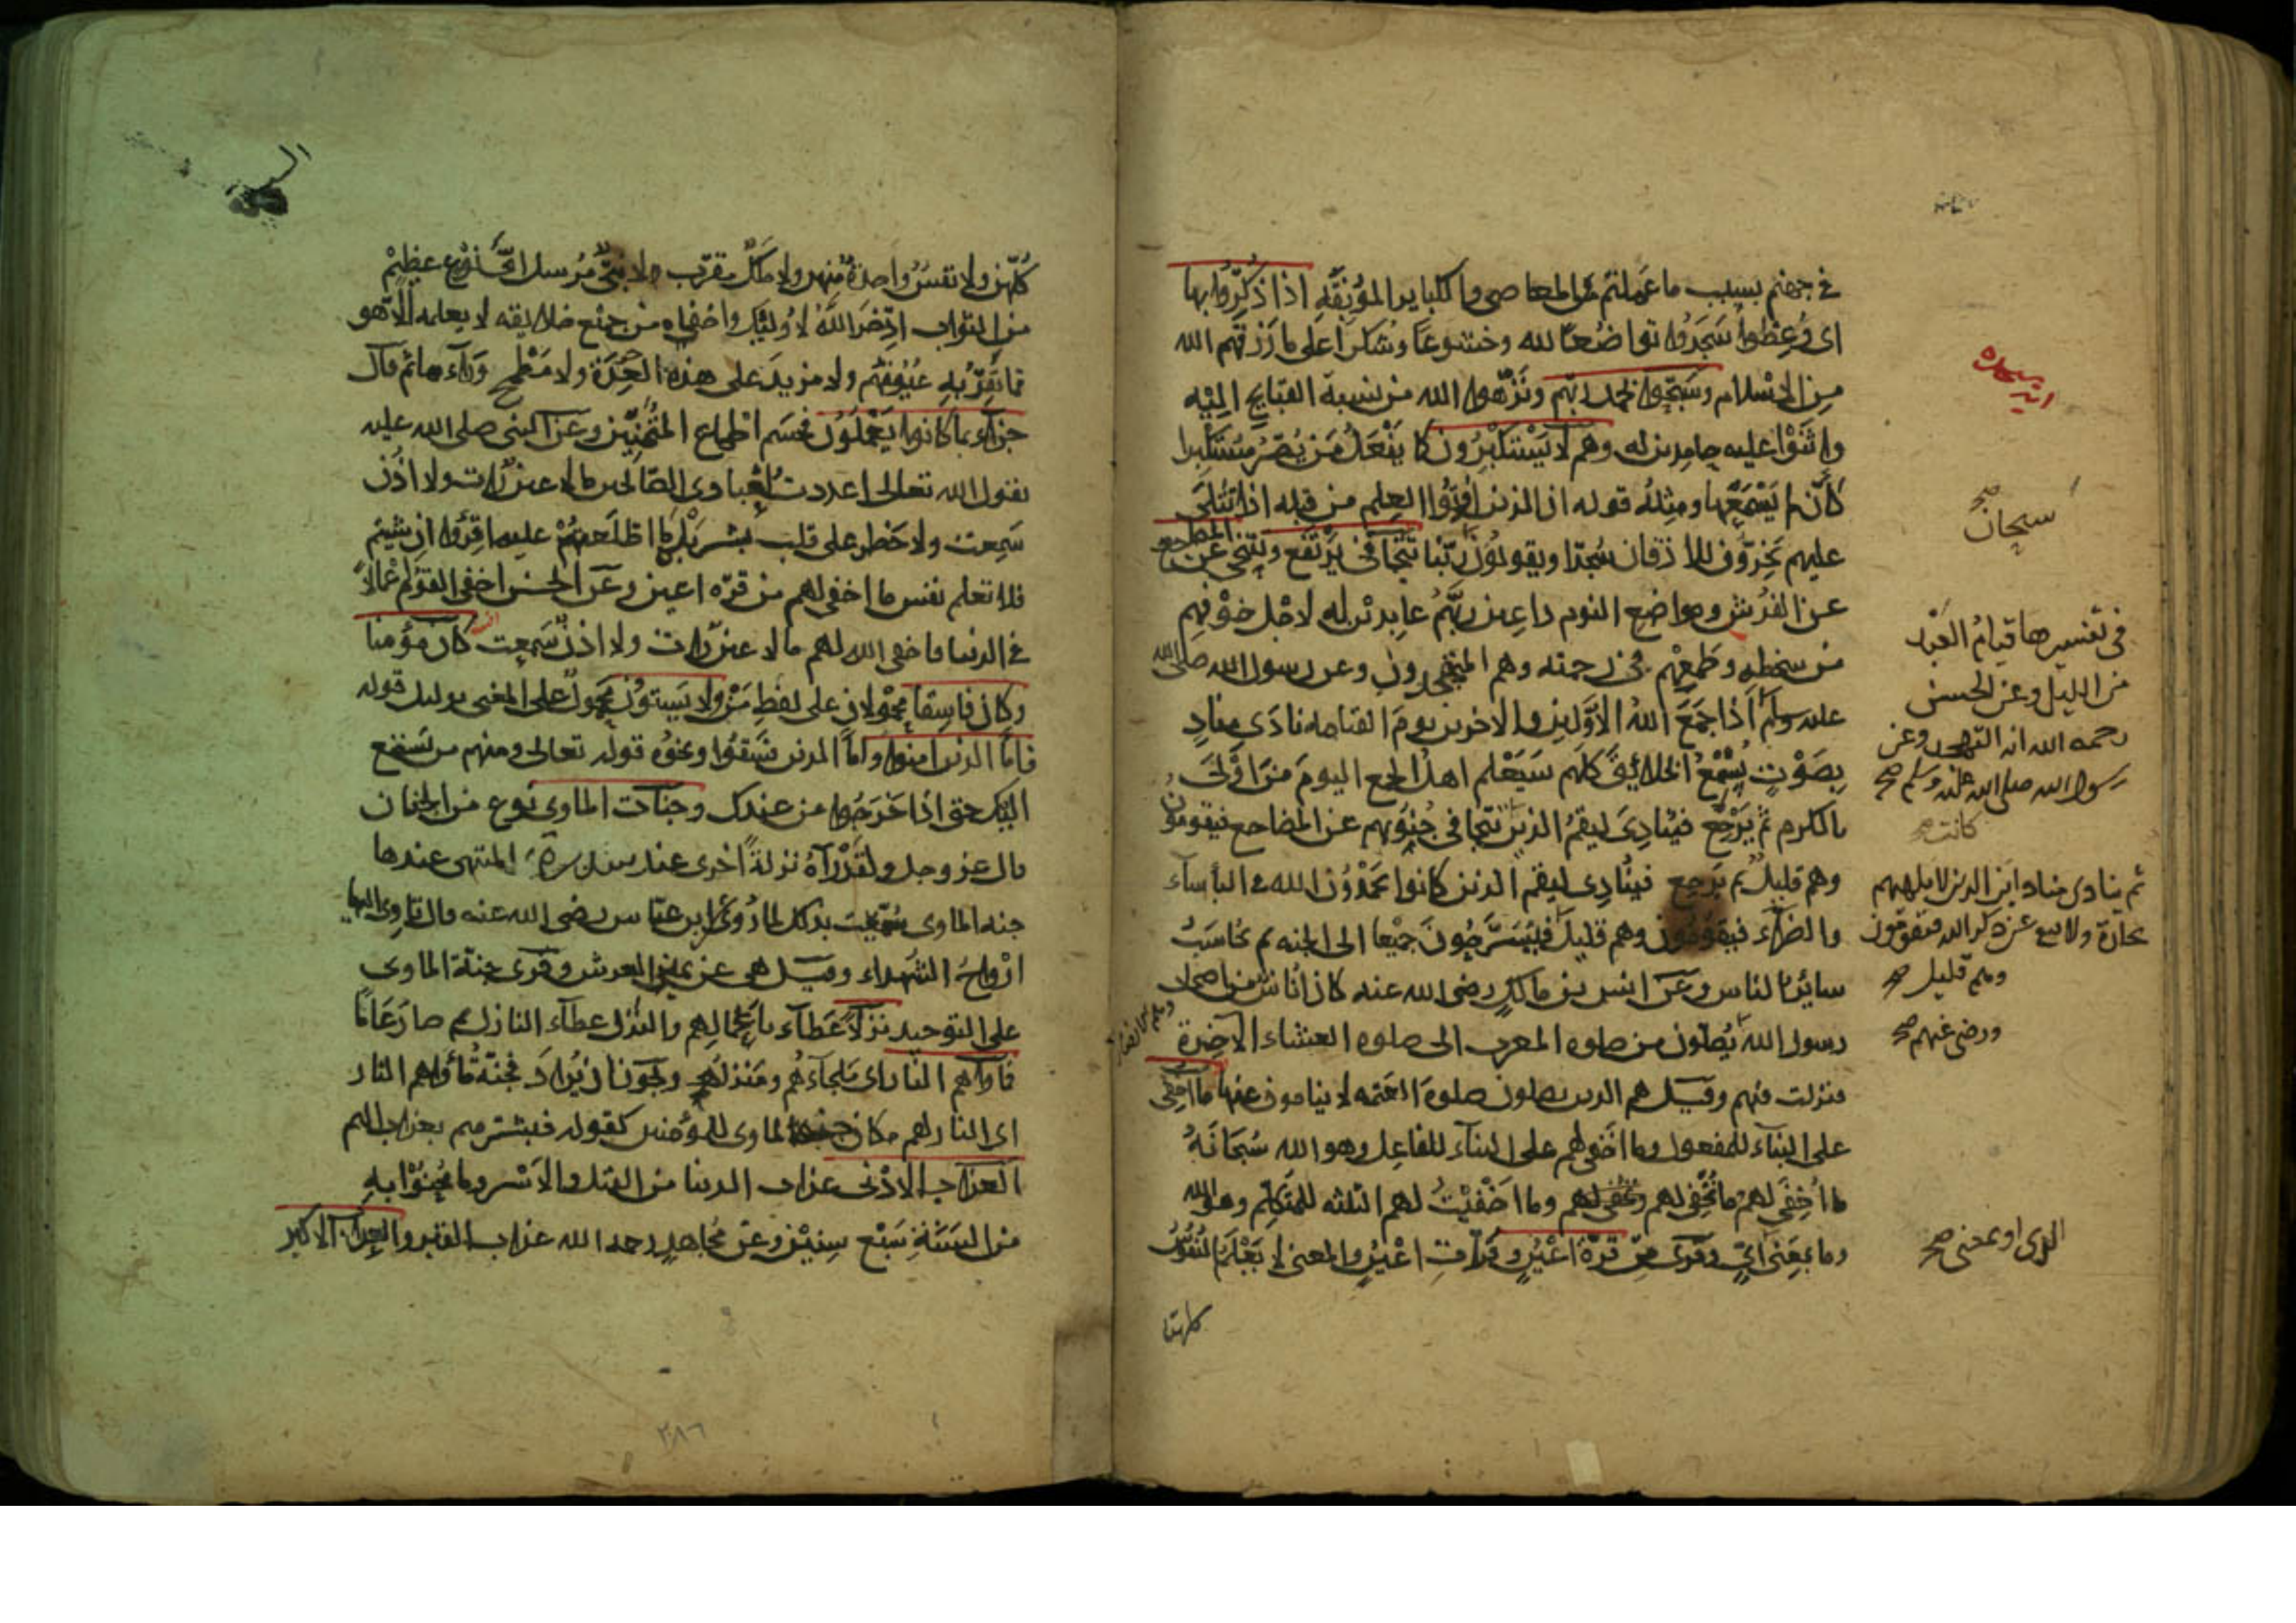 في جهنم بسبب ما عملتم من المعاصي والكباير الموبقة اذا ذكروا بها
اي وعظوا سجدوا تواضعا لله وخشوعا وشكرا على ما رزقهم الله
من الاسلام وسبحوا بحمد ربهم ونزهوا الله من نسبة القبايح اليه
واثنوا عليه حامدين له وهم لا يستكبرون كما يفعل من يصر مستكبرا
كأن لم يسمعها ومثله قوله ان الذين اوتوا العلم من قبله اذا يتلى
عليهم يخرون للاذقان سجدا ويقولون سبحان ربنا تتجافى يرتفع وتتنحى عن المضاجع
عن الفرش ومواضع النوم داعين ربهم عابدين له لاجل خوفهم
من سخطه وطمعهم في رحمته وهم المتهجدون وعن رسول الله صلى الله
عليه وسلم اذا جمع الله الاولين والاخرين يوم القيامه نادى مناد
بصوت يسمع الخلائق كلهم سيعلم اهل الجمع اليوم من اولى
بالكرم ثم يرجع فينادي ليقم الذين تتجافى جنوبهم عن المضاجع فيقومون
وهم قليل ثم يرجع فينادي ليقم الذين كانوا يحمدون الله في البأساء
والضراء فيقومون وهم قليل فيسرحون جميعا الى الجنه ثم يحاسب
سائر الناس وعن انس بن مالك رضي الله عنه كان اناس من اصحاب
رسول الله يصلون من صلوه المغرب الى صلوه العشاء الاخرة
فنزلت فيهم وقيل هم الذين يصلون صلوة العتمه لا ينامون عنها ما اخفي
على البناء للمفعول وما اخفى لهم على البناء للفاعل وهو الله سبحانه
ما اخفي لهم ما نخفي لهم ونخفي لهم وما اخفيت لهم الثلثه للمتكلم وهو الله
وما بمعنى اي وقرى من قرة اعين وقرات اعين والمعنى لا يعلم النفوس
كلهن
سبحان صح
في تفسيرها قيام العبد
من الليل وعن الحسن
رحمه الله انه التهجد وعن
رسول الله صلى الله عليه وسلم صح
كانت صح
ثم ينادي مناد اين الذين لا تلهيهم
تجارة ولا بيع عن ذكر الله فيقومون
وهم قليل صح
ورضي عنهم صح
الذي او بمعنى صح
كلهن ولا نفس واحدة منهن ولا ملك مقرب ولا نبي مرسل اي نوع عظيم
من الثواب ادخر الله لاولئك واخفاه من جميع خلائقه لا يعلمه الا هو
مما تقر به عيونهم ولا مزيد على هذه العدة ولا مطمح وراءها ثم قال
جزاء بما كانوا يعملون فحسم اطماع المتمنين وعن النبي صلى الله عليه
يقول الله تعالى اعددت لعبادي الصالحين ما لا عين رات ولا اذن
سمعت ولا خطر على قلب بشر بله ما اطلعتهم عليه اقرؤا ان شيتم
فلا تعلم نفس ما اخفي لهم من قره اعين وعن الحسن اخفى القوم اعمالا
في الدنيا فاخفى الله لهم ما لا عين رات ولا اذن سمعت كان مؤمنا
وكان فاسقا محمولان على لفظ من ولا يستون محمول على المعنى بدليل قوله
فاما الذين امنوا واما الذين فسقوا ونحوه قوله تعالى ومنهم من يستمع
اليك حتى اذا خرجوا من عندك وجنات الماوى نوع من الجنان
قال عز وجل ولقد رآه نزلة اخرى عند سدرة المنتهى عندها
جنه الماوى سميت بذلك لما روي ابن عباس رضي الله عنه قال تاوي اليها
ارواح الشهداء وقيل هي عن يمين العرش وقرى جنة الماوى
على التوحيد نزلا عطاء باعمالهم والنزل عطاء النازل ثم صار عاما
فماواهم النار اي ملجاءهم ومنزلهم ويجوز ان يراد فجنة مأواهم النار
اي النار لهم مكان جنه الماوى للمؤمنين كقوله فبشرهم بعذاب اليم
العذاب الادنى عذاب الدنيا من القتل والاسر وما محنوا به
من السنة سبع سنين وعن مجاهد رحمه الله عذاب القبر والعذاب الاكبر
٢٨٦